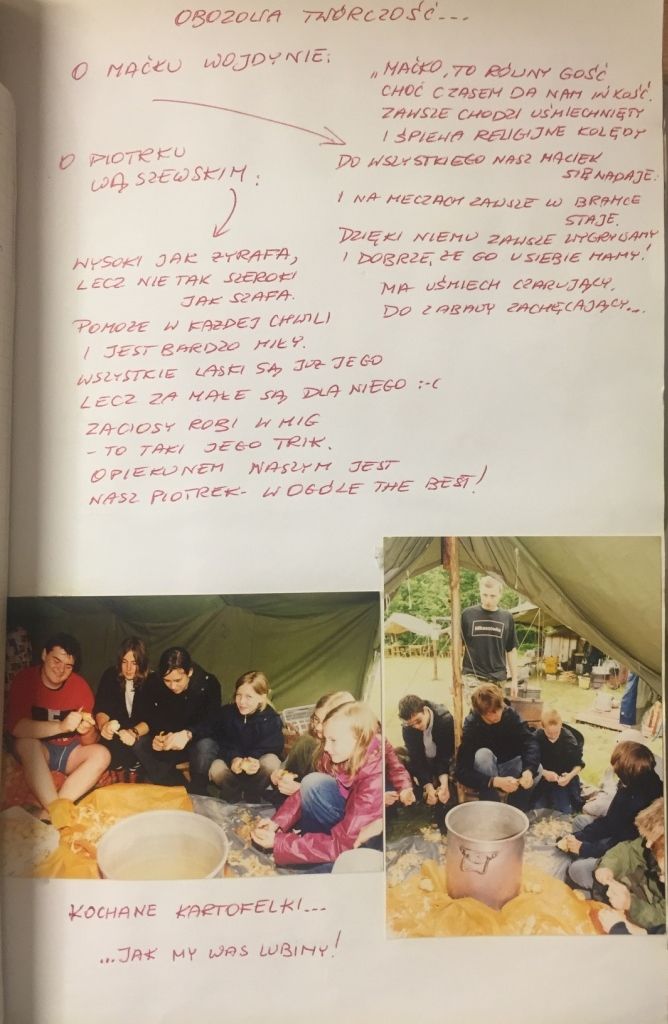 OBOZOWA TWÓRCZOŚĆ...
O MAĆKU WOJDYNIE:
„MAĆKO, TO RÓWNY GOŚĆ
CHOĆ CZASEM DA NAM W KOŚĆ.
ZAWSZE CHODZI UŚMIECHNIĘTY
I ŚPIEWA RELIGIJNE KOLĘDY
DO WSZYSTKIEGO NASZ MACIEK
SIĘ NADAJE.
I NA MECZACH ZAWSZE W BRAMCE
STAJE.
DZIĘKI NIEMU ZAWSZE WYGRYWAMY
I DOBRZE, ŻE GO U SIEBIE MAMY!
MA UŚMIECH CZARUJĄCY,
DO ZABAWY ZACHĘCAJĄCY...
O PIOTRKU
WĄSZEWSKIM:
WYSOKI JAK ŻYRAFA,
LECZ NIE TAK SZEROKI
JAK SZAFA.
POMOŻE W KAŻDEJ CHWILI
I JEST BARDZO MIŁY.
WSZYSTKIE LASKI SĄ JUŻ JEGO
LECZ ZA MAŁE SĄ DLA NIEGO :-(
ZACIOSY ROBI W MIG
- TO TAKI JEGO TRIK.
OPIEKUNEM NASZYM JEST
NASZ PIOTREK - W OGÓLE THE BEST!
KOCHANE KARTOFELKI...
...JAK MY WAS LUBIMY!